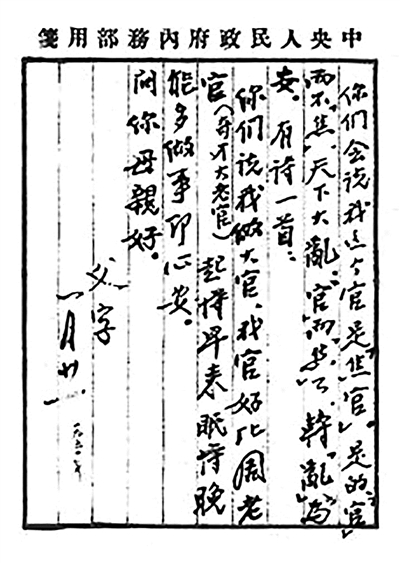 中央人民政府內務部用箋
你们会说我这个官是“焦官”。是的“官”
而不“焦”，天下大亂，“官”而“焦”了，轉“亂”為
安。有诗一首：
你们说我做大官，我官好比周老
官（奇才大老官）起得早来眠得晚
能多做事即心安。
问你母親好。
父字
一月廿一
一九五〇年